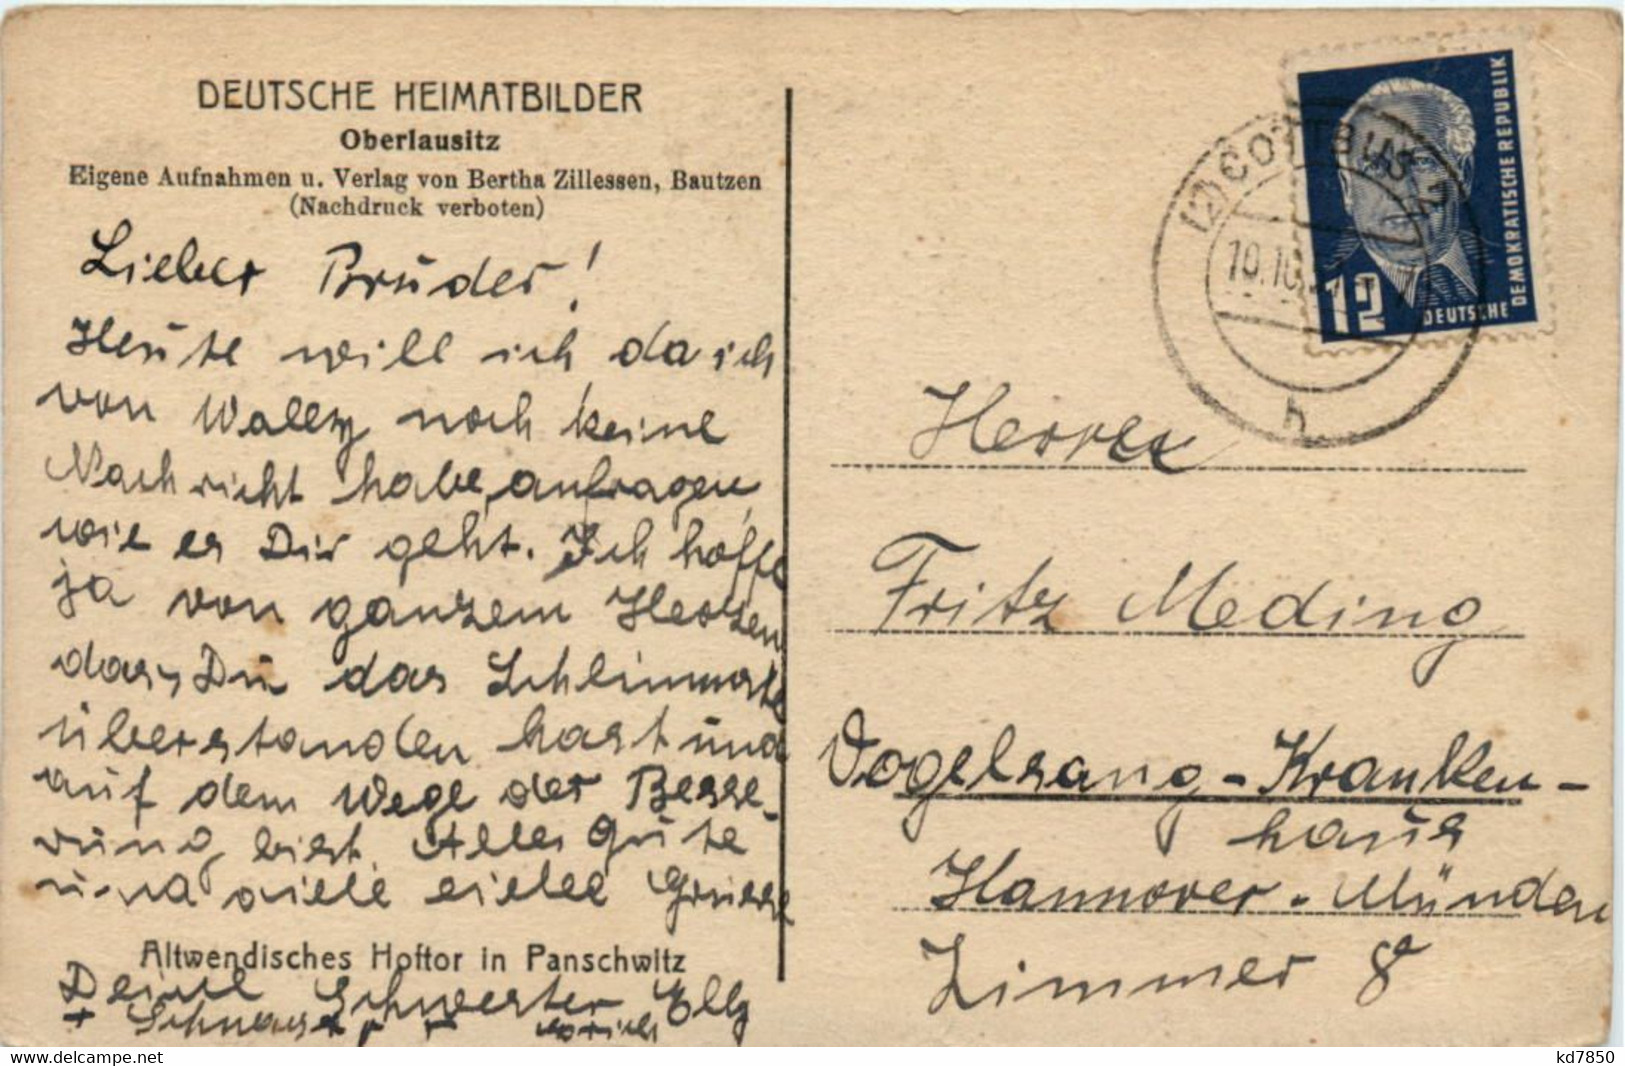 DEUTSCHE HEIMATBILDER
Oberlausitz
Eigene Aufnahmen u. Verlag von Bertha Zillessen, Bautzen
(Nachdruck verboten)
Lieber Bruder!
Heute will ich da ich
von Wally noch keine
Nachricht habe, anfragen,
wie es Dir geht. Ich hoffe
ja von ganzem Herzen
dass Du das Schlimmste
überstanden hast und
auf dem Wege der Besse-
rung bist. Alles Gute
und viele Grüsse
Altwendisches Hoftor in Panschwitz
Deine Schwester Elly
+ Schwager
(2) COTTBUS 2
10.10.
h
12
DEUTSCHE
DEMOKRATISCHE REPUBLIK
Herrn
Fritz Meding
Vogelsang-Kranken-
haus
Hannover-Münden
Zimmer 8
www.delcampe.net
kd7850